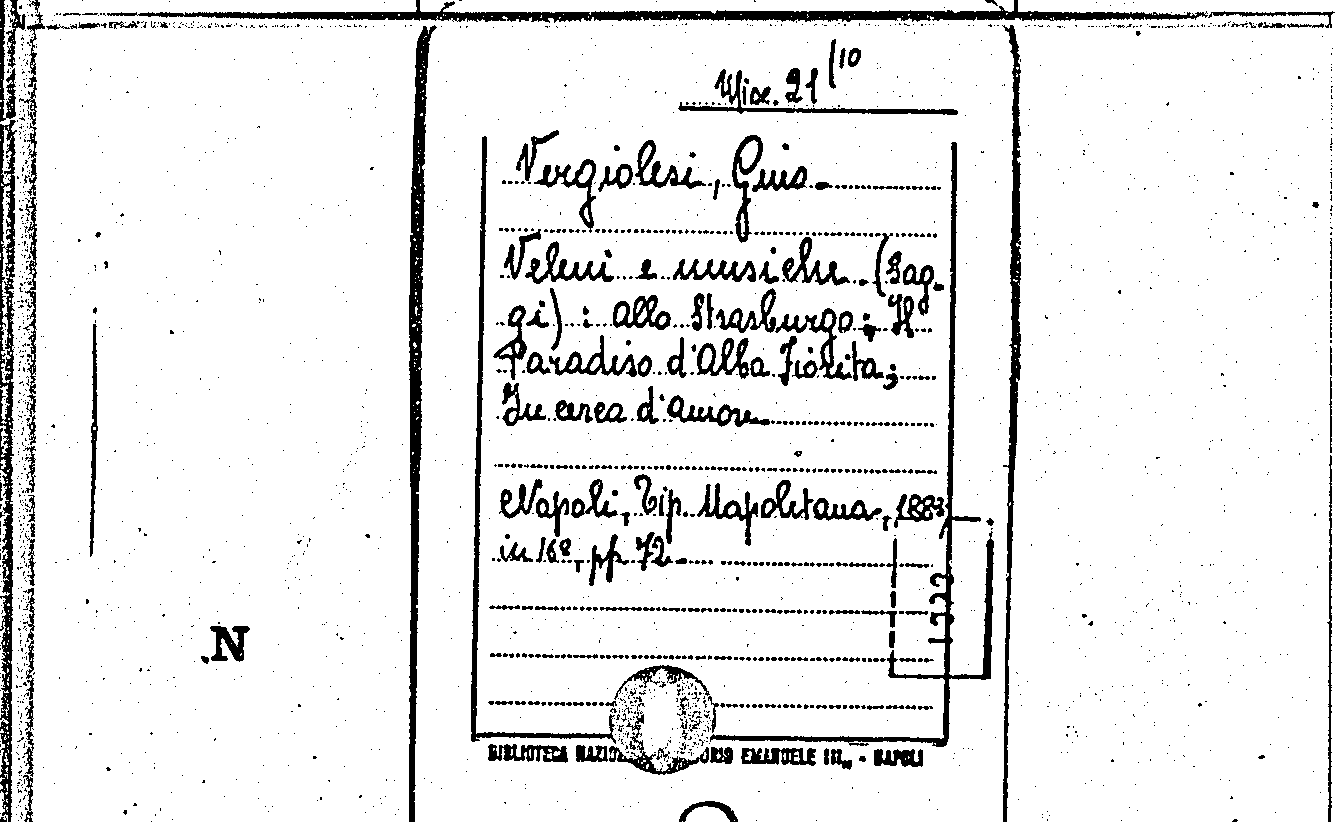 Misc. 21 (10
Vergiolesi, Gius.
Veleni e musiche. (Sag-
gi) : Allo Strasburgo; Il
Paradiso d'Alba Fiorita;
In cerca d'amore
Napoli, Tip. Napoletana, 1883
in 16º, pp. 72.
N
BIBLIOTECA EMANUELE III„ - NAPOLI